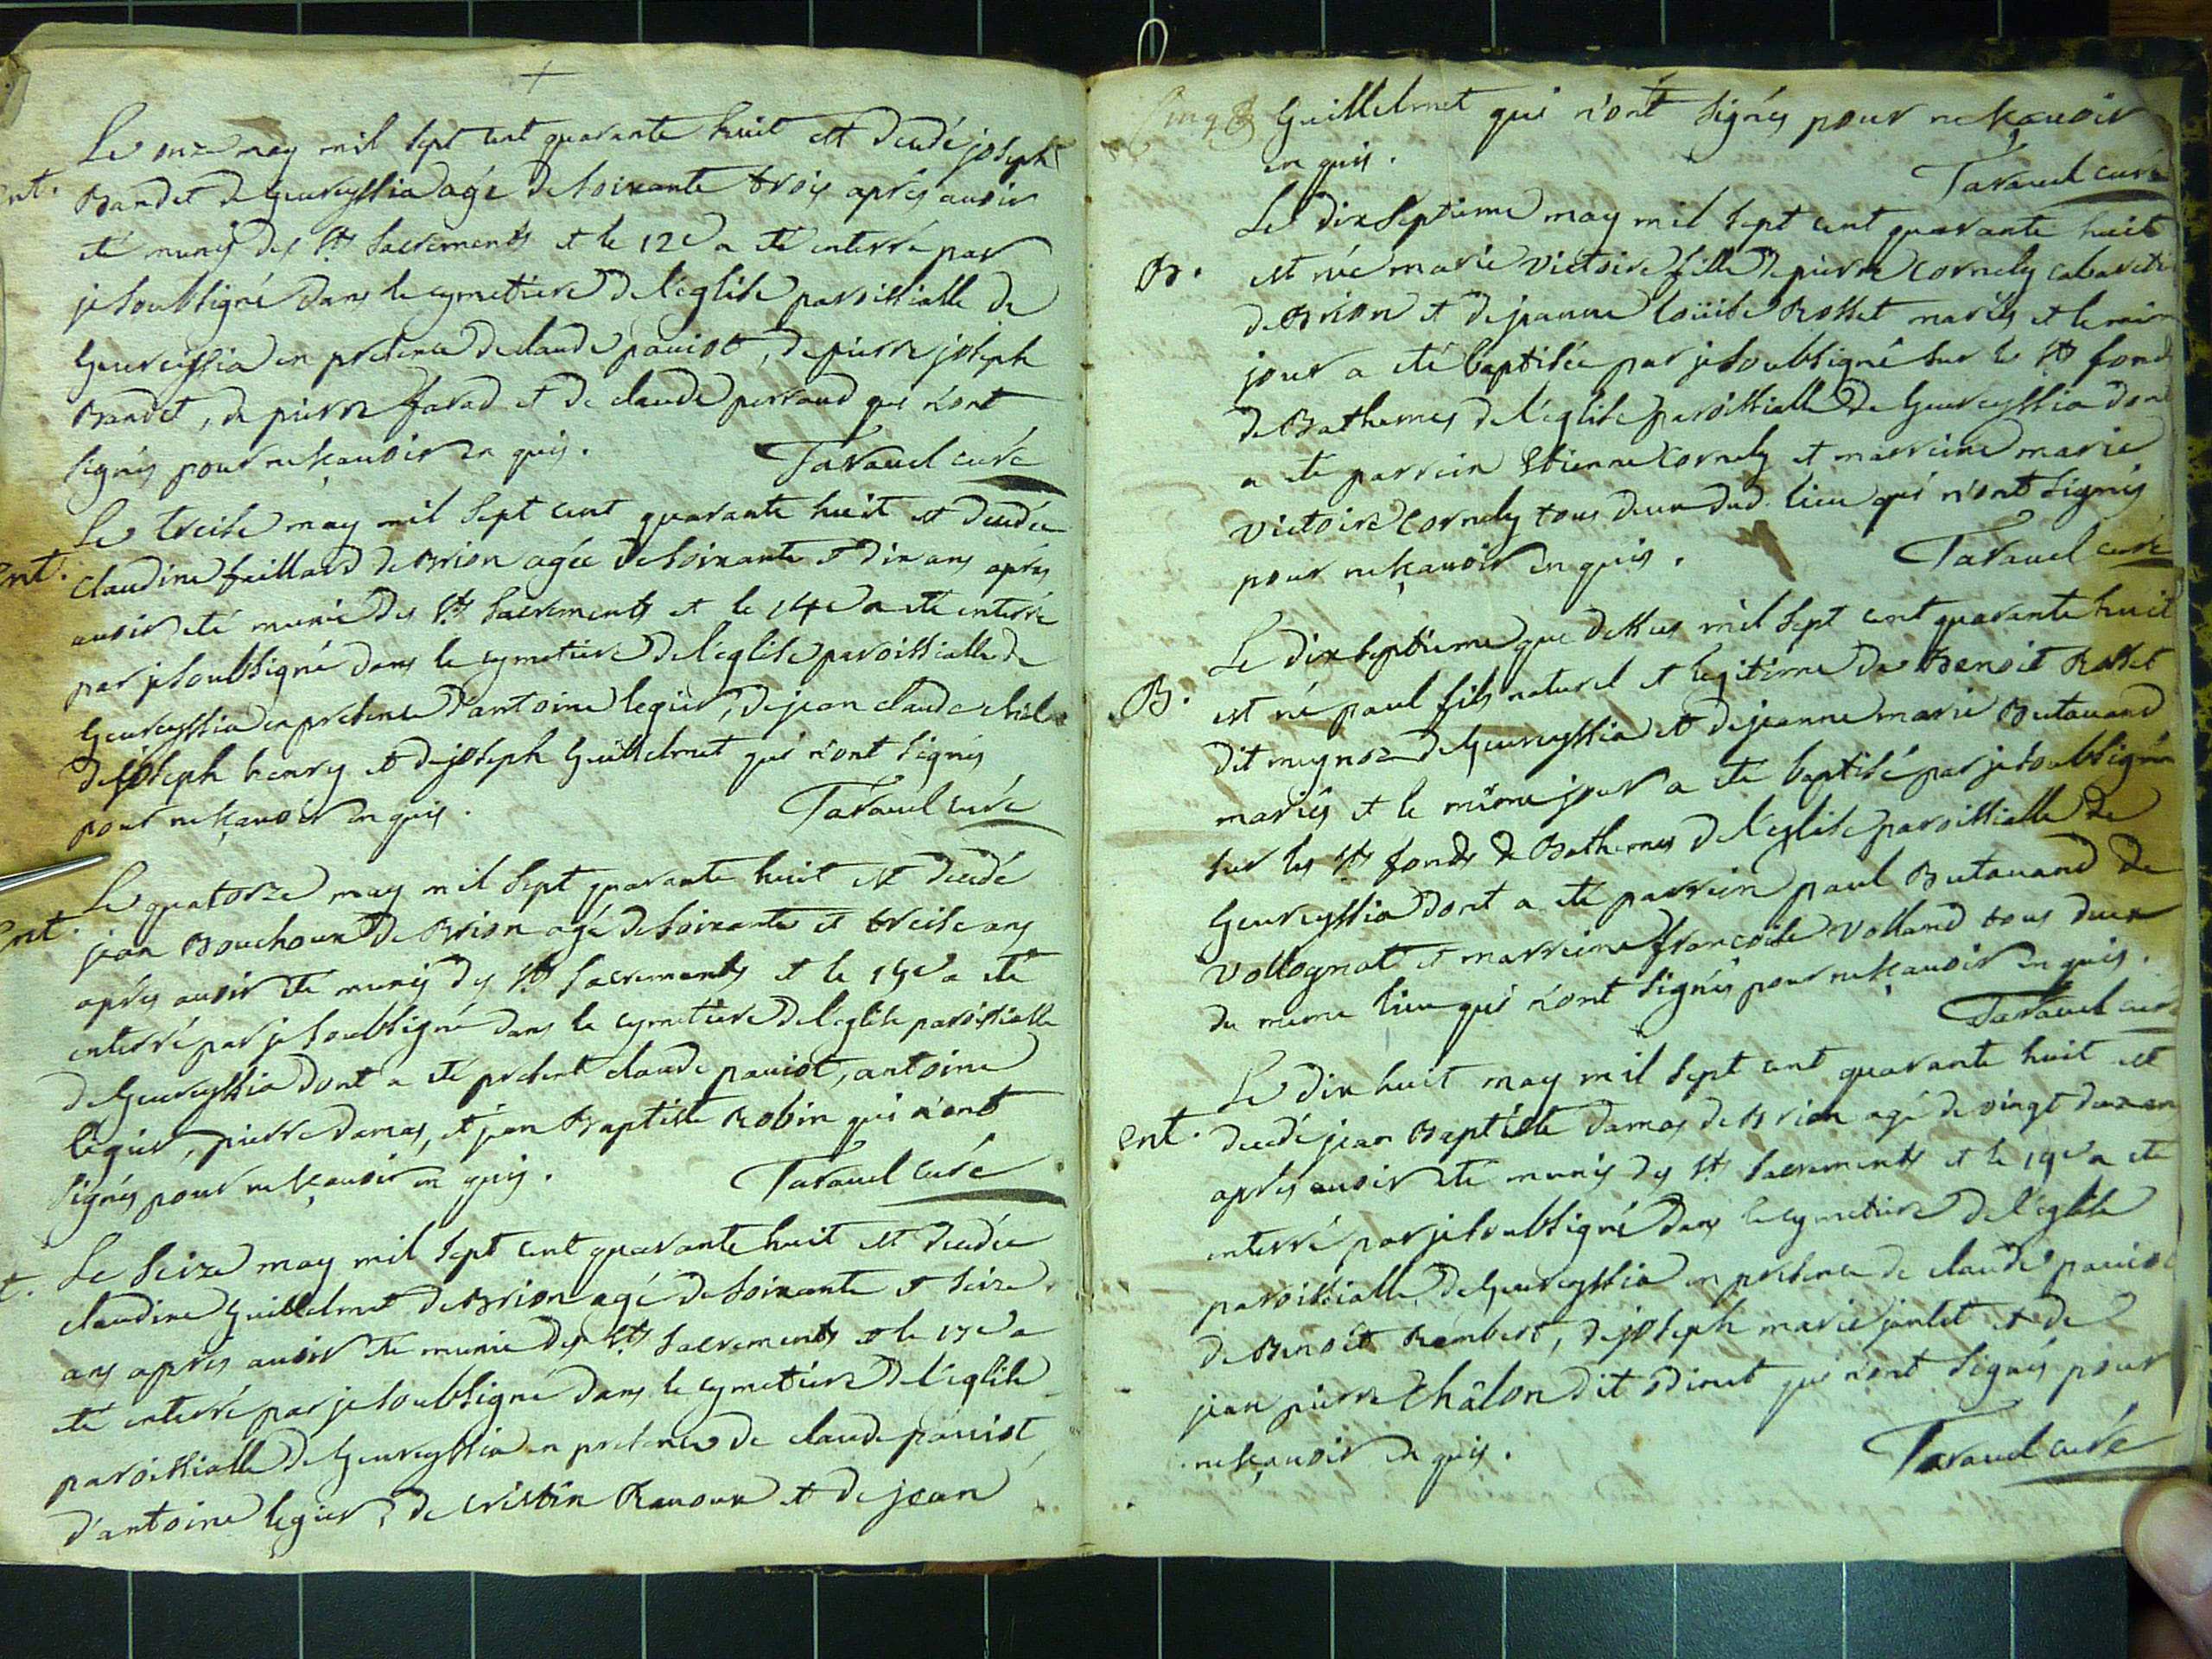 Le onze may mil sept cent quarante huit est decedé joseph
ent. Bandet de geureyssia agé de soixante trois apres avoir
eté munis des Sts Sacrements et le 12e a eté enterré par
je soubsigné dans le cymetiere de l'eglise paroissialle de
Geureissia en presence de claude pauiot, de pierre joseph
Bandet, de pierre farad et de claude perraud qui n'ont
signés pour ne sçavoir en quis. Taravel curé
Le treise may mil sept cent quarante huit est decedée
ent. claudine faillard de Brion agée de soixante et dix ans apres
avoir eté munie des Sts Sacrements et le 14e a eté enterré
par je soubsigné dans le cymetiere de l'eglise paroissialle de
Geureyssia en presence d'antoine legier, de jean claude
de joseph henry et de joseph Guillelmet qui n'ont signés
pour ne sçavoir en quis. Taravel curé
Le quatorze may mil sept quarante huit est decedé
ent. jean Bouchoux de Brion agé de soixante et treise ans
apres avoir eté munis des Sts Sacrements et le 15e a eté
enterré par je soubsigné dans le cymetiere de l'eglise paroissialle
de Geureyssia dont a eté present claude pauiot, antoine
legier, pierre damas, et jean Baptiste Robin qui n'ont
signés pour ne sçavoir en quis. Taravel curé
t. Le seize may mil sept cent quarante huit est decedée
claudine Guillelmet de Brion agé de soixante et seize
ans apres avoir eté munie des Sts Sacrements et le 17e a
eté enterré par je soubsigné dans le cymetiere de l'eglise
paroissialle de Geureyssia en presence de claude pauiot,
d'antoine legier, de cristin Ravoux et de jean
Guillelmet qui n'ont signés pour ne sçavoir
en quis. Taravel curé
Le dix septieme may mil sept cent quarante huit
B. est née marie victoire fille de pierre cornely cabareti
de Brion et de jeanne loüise Rosset mariés et le mim
jour a eté baptisée par je soubsigné sur les Sts fonds
de Bathemes de l'eglise paroissialle de Geureyssia dont
a eté parrein Etienne cornely et marreine marie
victoire cornely tous deux dud. lieu qui n'ont signés
pour ne sçavoir en quis. Taravel curé
Le dix septieme que dessus mil sept cent quarante huit
B. est né paul fils naturel et legitime de Benoit Rosset
dit mugnoz de Geureyssia et de jeanne marie Butavand
mariés et le mime jour a eté baptisé par je soubsigné
sur les Sts fonds de Bathemes de l'eglise paroissialle de
Geureyssia dont a eté parrein paul Butavand de
vollognat et marreine francoise volland tous deux
du meme lieu qui n'ont signés pour ne sçavoir en quis.
Taravel curé
Le dix huit may mil sept cent quarante huit est
ent. decedé jean Baptiste damas de Brion agé de vingt deux an
apres avoir eté munis des Sts Sacrements et le 19e a eté
enterré par je soubsigné dans le cymetiere de l'eglise
paroissialle de Geureyssia en presence de claude pauiot
de Benoit Rembert, de joseph marie jantet et de
jean pierre Châlon dit odinet qui n'ont signés pour
ne sçavoir en quis. Taravel curé